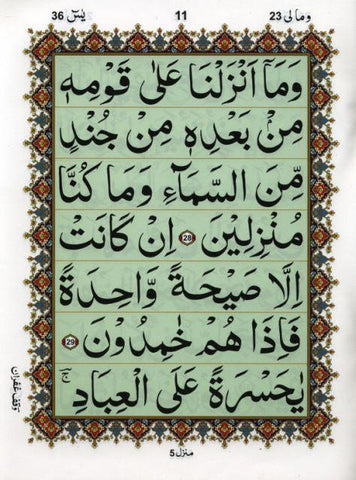 وما لى 23 11 يٰسٓ 36
وَمَاۤ اَنْزَلْنَا عَلٰى قَوْمِهٖ
مِنْۢ بَعْدِهٖ مِنْ جُنْدٍ
مِّنَ السَّمَآءِ وَمَا كُنَّا
مُنْزِلِيْنَ 28 اِنْ كَانَتْ
اِلَّا صَيْحَةً وَّاحِدَةً
فَاِذَا هُمْ خٰمِدُوْنَ 29
يٰحَسْرَةً عَلَى الْعِبَادِ ۚ
وقف غفران
منزل 5